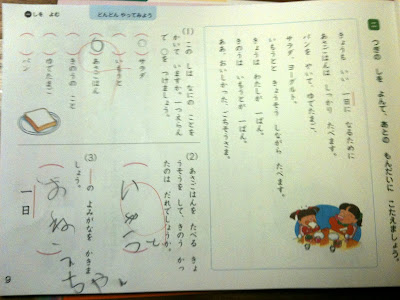 しを よむ
どんどん やってみよう
二 つぎの しを よんで、あとの もんだいに こたえましょう。
きょうも いい 一日に なるために
あさごはんは しっかり たべます。
パンを やいて、ゆでたまご、
サラダ、ヨーグルト。
いもうとと きょうそう しながら たべます。
きょうは わたしが 一ばん。
きのうは いもうとが 一ばん。
ああ、おいしかった。ごちそうさま。
(1) この しは なにの ことを
かいて いますか。一つ えらん
で ○を つけましょう。
(○) サラダ
( ) いもうと
(○) あさごはん
( ) きのうの こと
( ) ゆでたまご
( ) パン
(2) あさごはんを たべる きょ
うそうを して、きのう かっ
たのは だれでしょうか。
(3) ―の よみかなを かきま
しょう。
一日
9